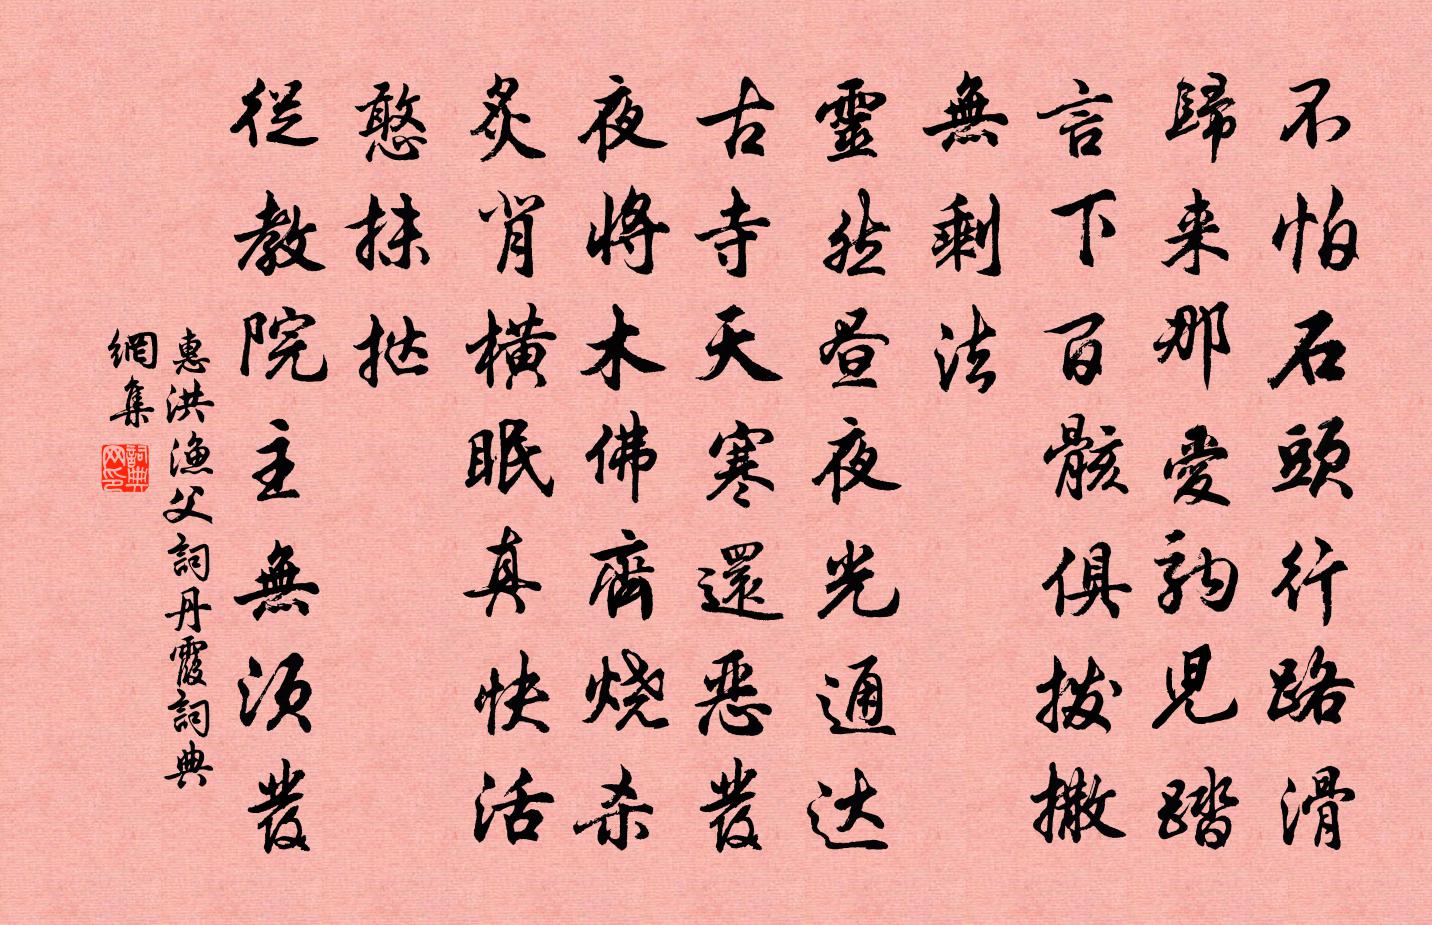 不怕石頭行路滑
歸来那愛駒兒踏
言下百骸俱撥撒
無剩法
靈然昼夜光通达
古寺天寒還惡發
夜將木佛齊燒杀
炙背橫眠真快活
憨抹撻
從教院主無須發
惠洪漁父詞丹霞詞典
網集
詞典
网印